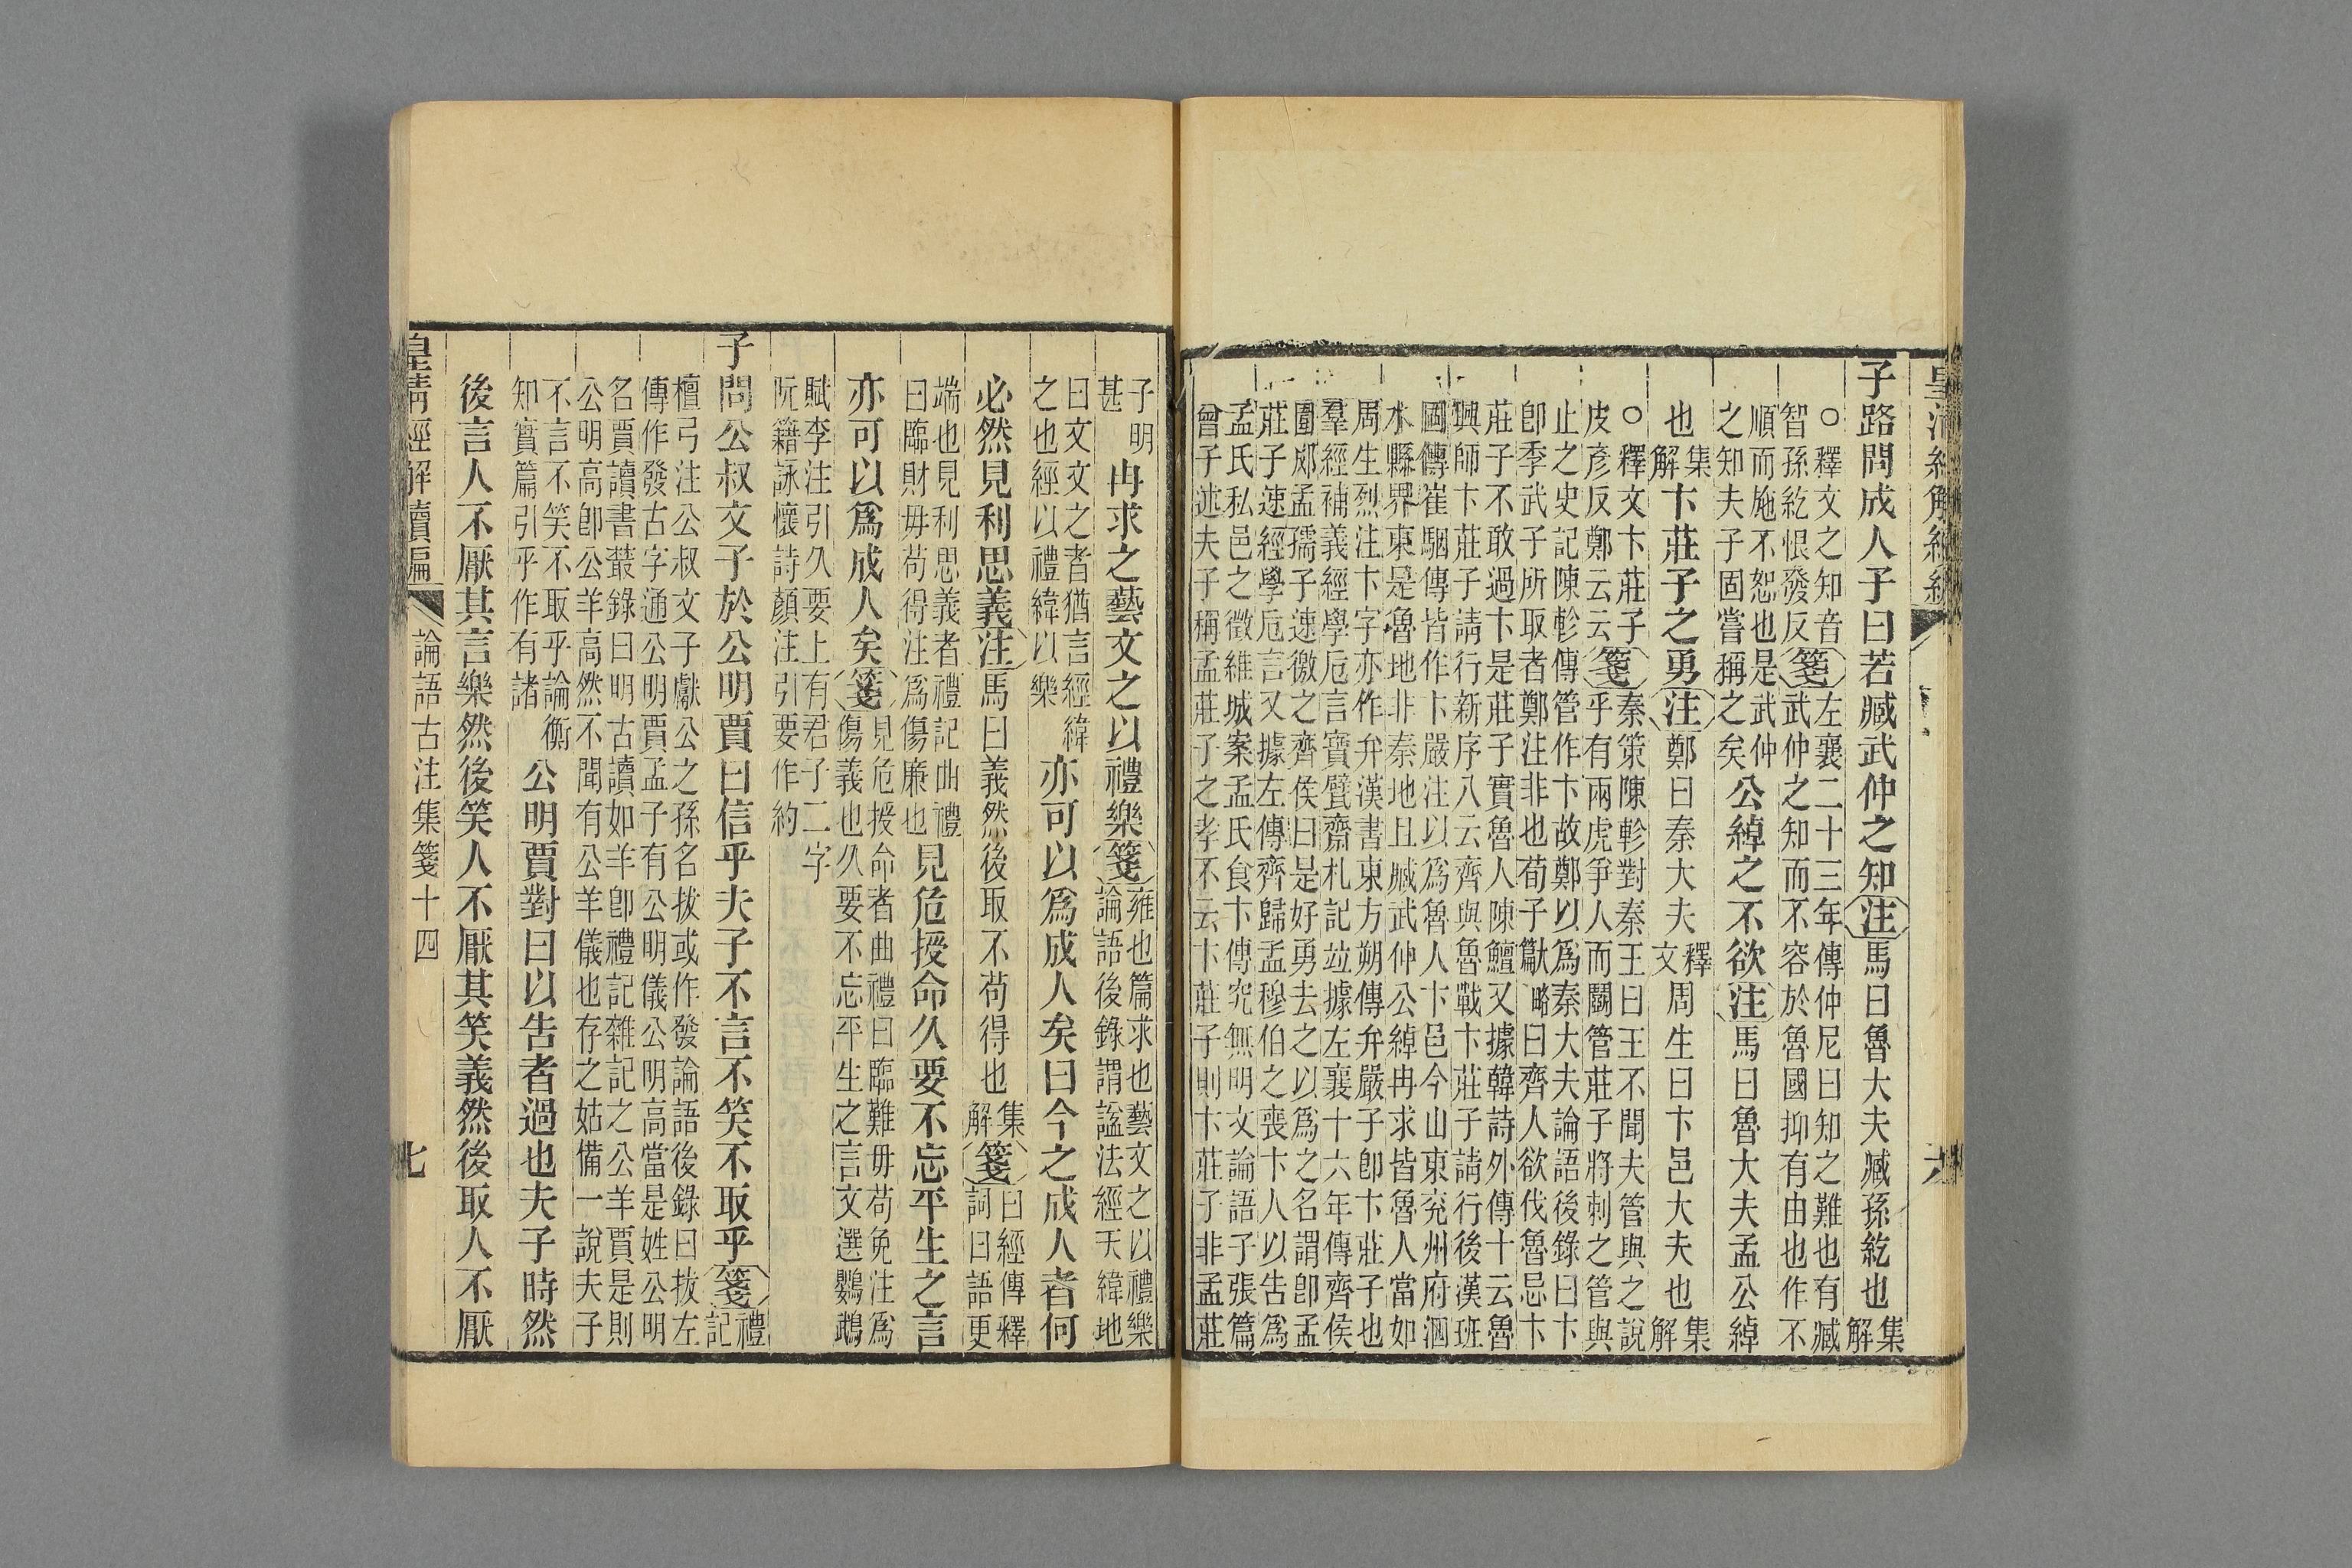 子路問成人子曰若臧武仲之知注馬曰魯大夫臧孫紇也集解
○釋文之知音智孫紇恨發反箋左襄二十三年傳仲尼曰知之難也有臧武仲之知而不容於魯國抑有由也作不
順而施不恕也是武仲之知夫子固嘗稱之矣公綽之不欲注馬曰魯大夫孟公綽
也集解卞莊子之勇注鄭曰秦大夫釋文周生曰卞邑大夫也集解
○釋文卞莊子皮彥反鄭云云箋秦策陳軫對秦王曰王不聞夫管與之說乎有兩虎爭人而鬭管莊子將刺之管與
止之史記陳軫傳管作卞故鄭以為秦大夫論語後錄曰卞卽季武子所取者鄭注非也荀子獸略曰齊人欲伐魯忌卞
莊子不敢過卞是莊子實魯人陳鱣又據韓詩外傳十云魯興師卞莊子請行新序八云齊與魯戰卞莊子請行後漢班
固傳崔駰傳皆作卞嚴注以為魯人卞邑今山東兗州府泗水縣界東是魯地非秦地且臧武仲公綽冉求皆魯人當如
周生烈注卞字亦作弁漢書東方朔傳弁嚴子卽卞莊子也羣經補義經學卮言寶甓齋札記竝據左襄十六年傳齊侯
圍郕孟孺子速徼之齊侯曰是好勇去之以為之名謂卽孟莊子速經學卮言又據左傳齊歸孟穆伯之喪卞人以告為
孟氏私邑之徵維城案孟氏食卞傳究無明文論語子張篇曾子述夫子稱孟莊子之孝不云卞莊子則卞莊子非孟莊
子明甚冉求之藝文之以禮樂箋雍也篇求也藝文之以禮樂論語後錄謂謚法經天緯地
曰文文之者猶言經緯之也經以禮緯以樂亦可以爲成人矣曰今之成人者何
必然見利思義注馬曰義然後取不苟得也集解箋曰經傳釋詞曰語更
端也見利思義者禮記曲禮曰臨財毋苟得注爲傷廉也見危授命久要不忘平生之言
亦可以爲成人矣箋見危授命者曲禮曰臨難毋苟免注爲傷義也久要不忘平生之言文選鸚鵡
賦李注引久要上有君子二字阮籍詠懷詩顏注引要作約
子問公叔文子於公明賈曰信乎夫子不言不笑不取乎箋禮記
檀弓注公叔文子獻公之孫名拔或作發論語後錄曰拔左傳作發古字通公明賈孟子有公明儀公明高當是姓公明
名賈讀書叢錄曰明古讀如羊卽禮記雜記之公羊賈是則公明高卽公羊高然不聞有公羊儀也存之姑備一說夫子
不言不笑不取乎論衡知實篇引乎作有諸公明賈對曰以告者過也夫子時然
後言人不厭其言樂然後笑人不厭其笑義然後取人不厭
皇清經解續編
論語古注集箋十四
七